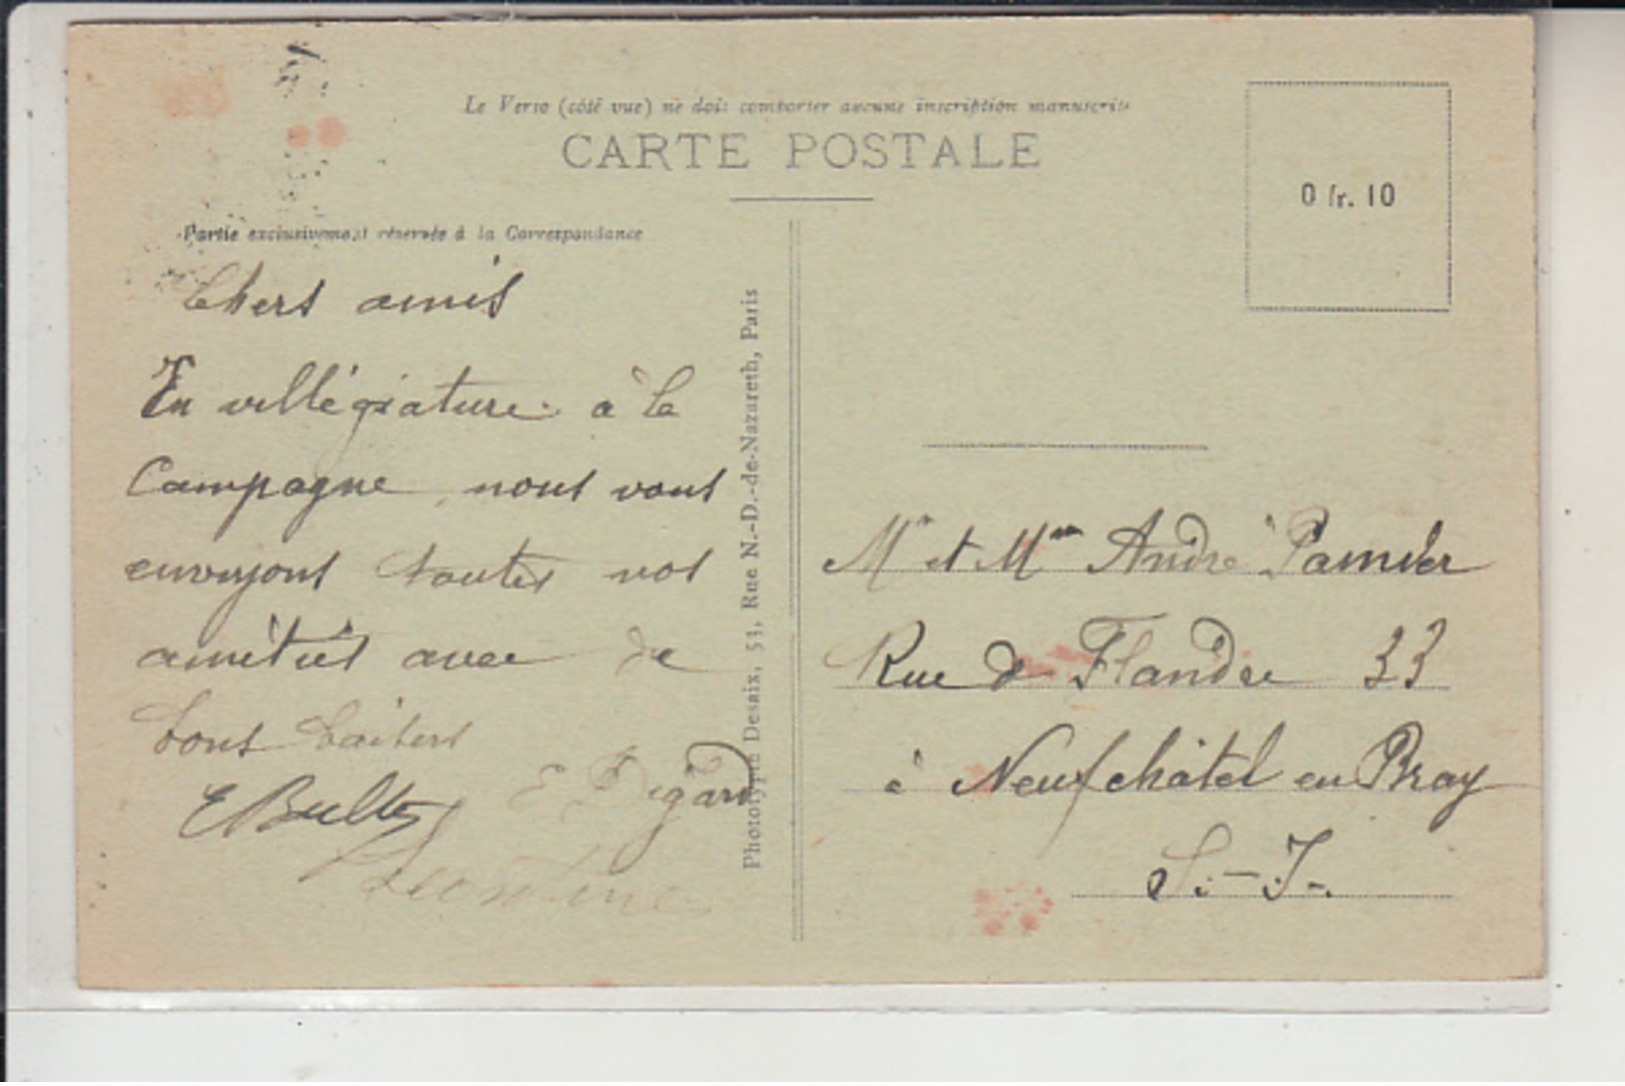 Le Verso (côté vue) ne doit comporter aucune inscription manuscrite
CARTE POSTALE
0 fr. 10
Partie exclusivement réservée à la Correspondance
Chers amis
En villégiature à la
Campagne nous vous
envoyons toutes nos
amitiés avec de
bons baisers
E Bulte
E Digard
Leontine
Phototypie Desaix, 53, Rue N.-D.-de-Nazareth, Paris
Mr et Mme André
Rue de Flandre 33
à Neufchâtel en Bray
S.-I.